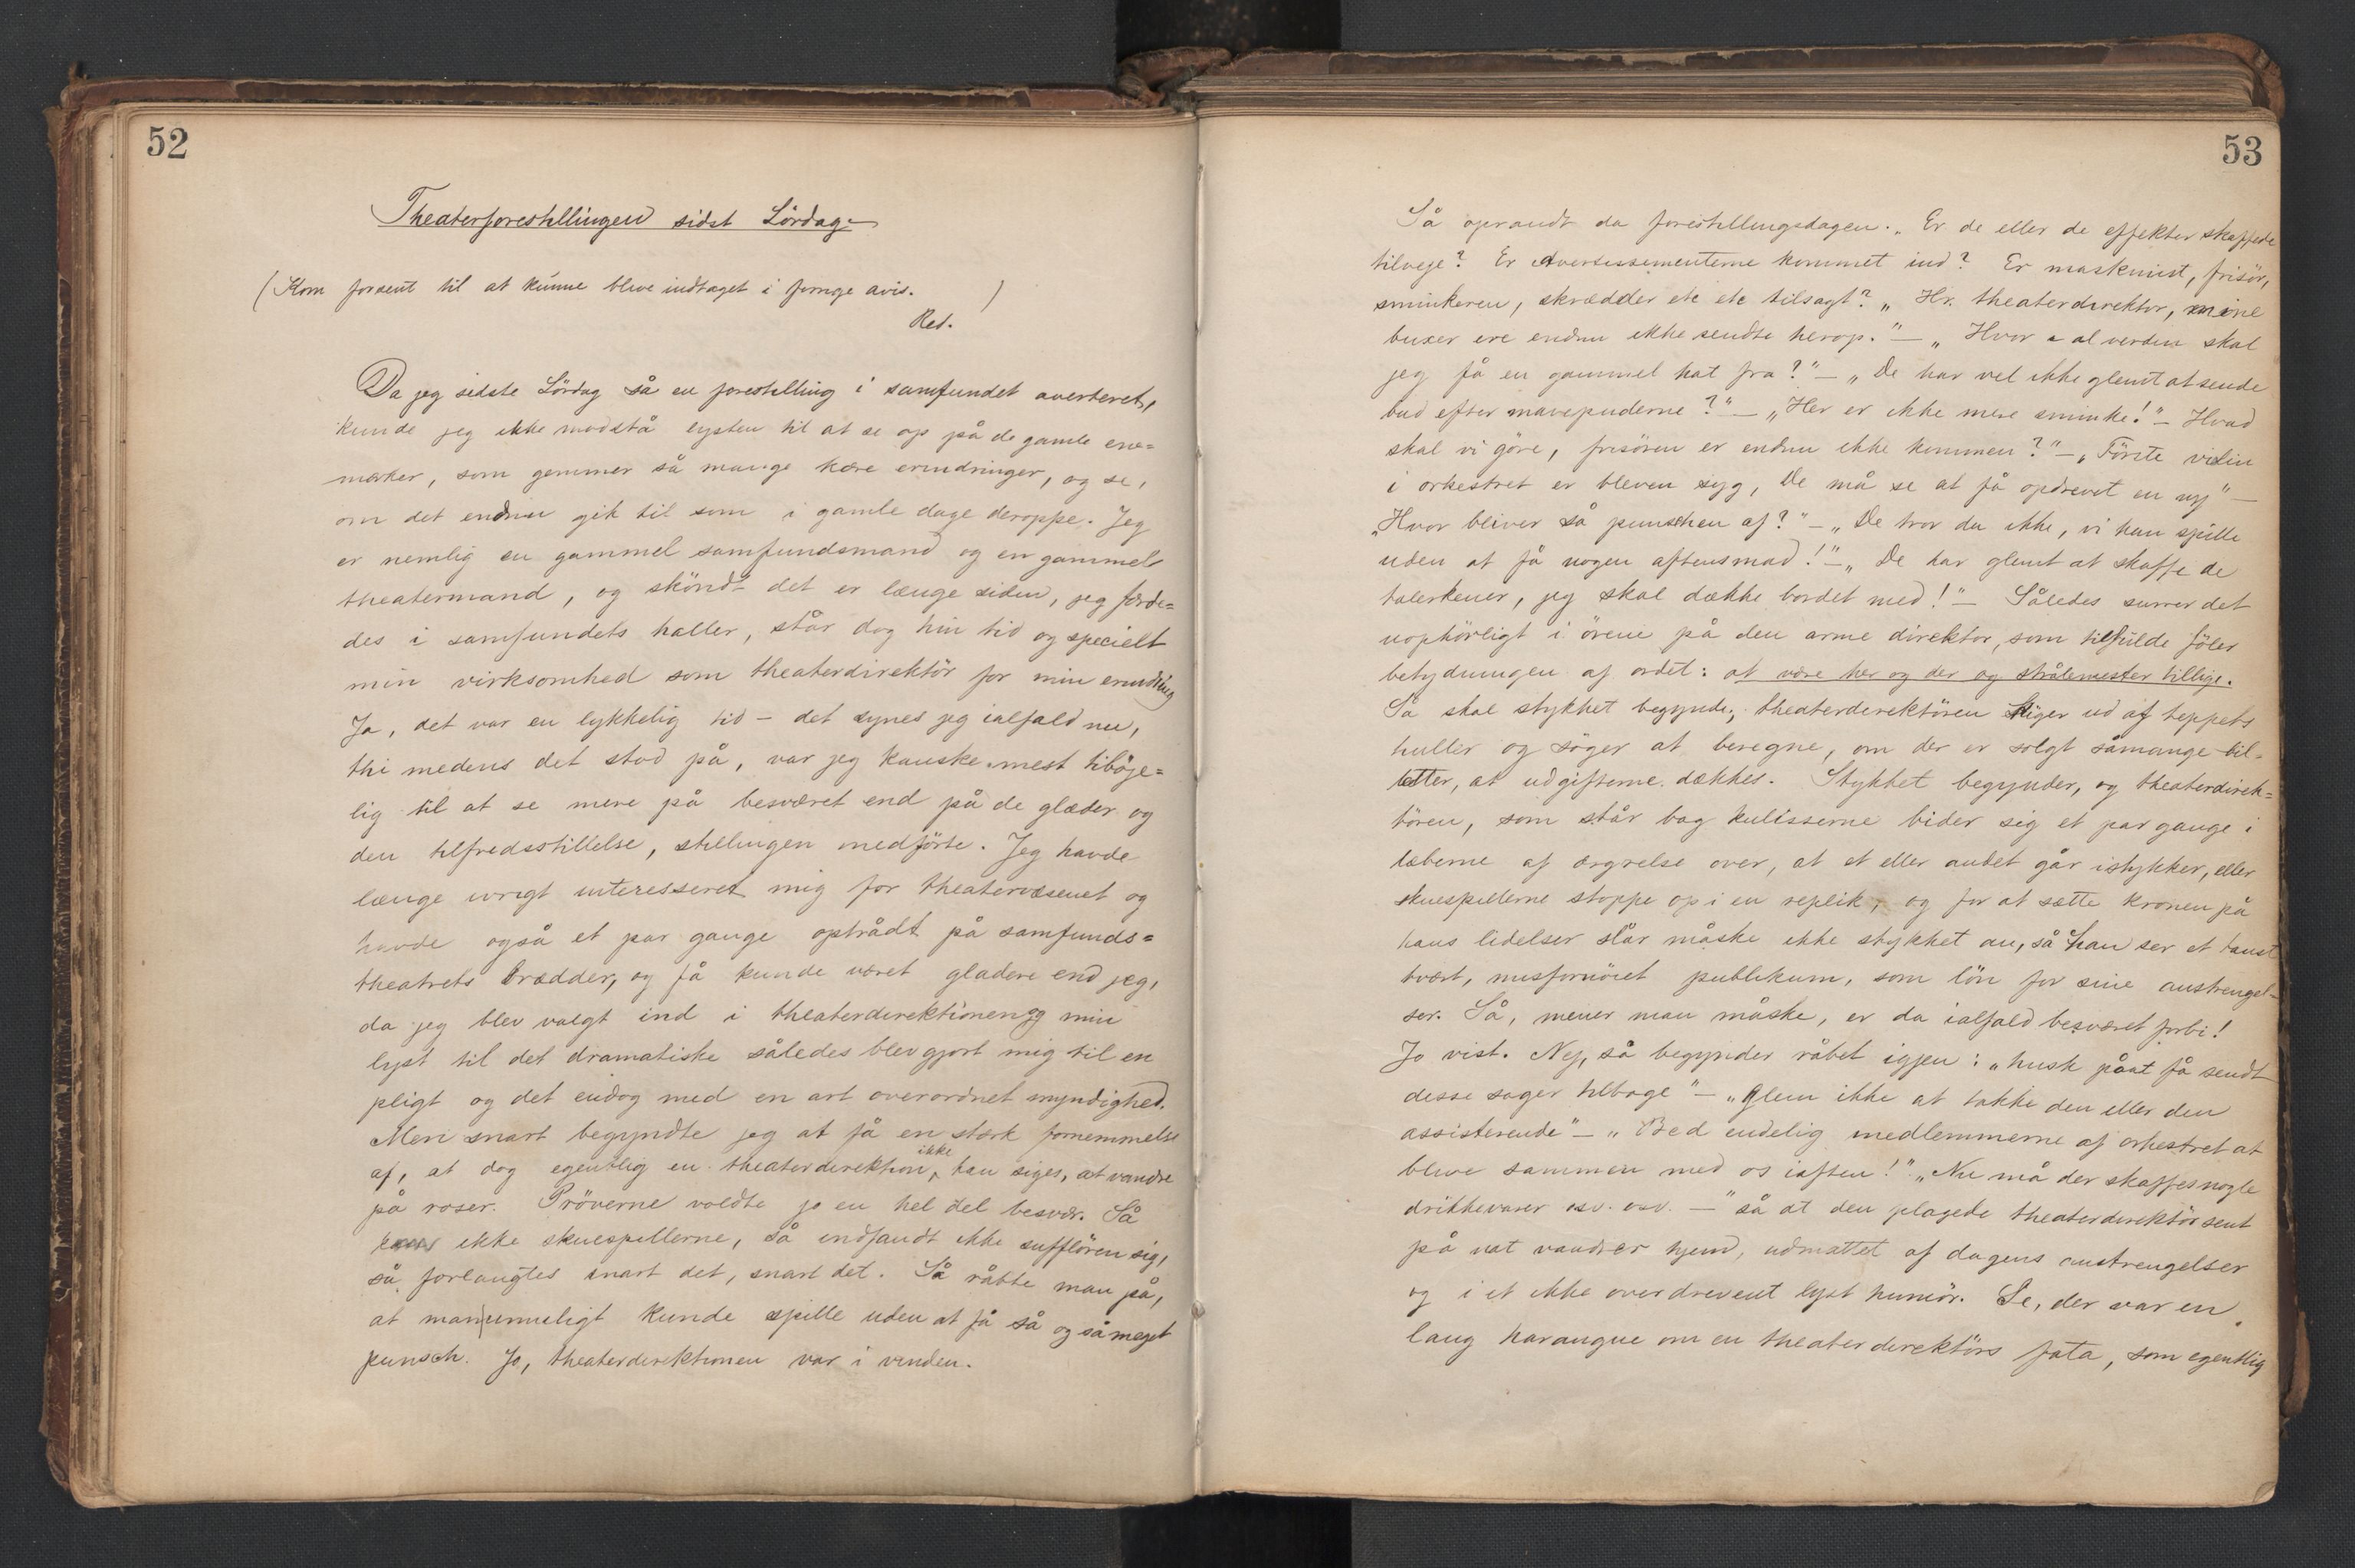 52
Theaterforestillingen sidst Lördag
(Kom forsent til at kunne blive indtaget i forrige avis. )
Red.
Da jeg sidste Lördag så en forestilling i samfundet averteret,
kunde jeg ikke modstå lysten til at se op på de gamle ene=
mærker, som gemmer så mange kære erindringer, og se,
om det endnu gik til som i gamle dage deroppe. Jeg
er nemlig en gammel samfundsmand og en gammel
theatermand, og sköndt det er længe siden, jeg færde=
des i samfundets haller, står dog hin tid og specielt
min virksomhed som theaterdirektör for min erindring
Ja, det var en lykkelig tid – det synes jeg ialfald nu,
thi medens det stod på, var jeg kanske mest tilböje=
lig til at se mere på besværet end på de glæder og
den tilfredsstillelse, stillingen medförte. Jeg havde
længe ivrigt interesseret mig for theatervæsenet og
havde også et par gange optrådt på samfunds=
theatrets brædder, og få kunde været gladere end jeg,
da jeg blev valgt ind i theaterdirektionen og min
lyst til det dramatiske således blev gjort mig til en
pligt og det endog med en art overordnet myndighed.
Men snart begyndte jeg at få en stærk fornemmelse
af, at dog egentlig en theaterdirektion ikke kan siges, at vandre
på roser. Pröverne voldte jo en hel del besvær. Så
kom ikke skuespillerne, så indfandt ikke sufflören sig,
så forlangtes snart det, snart det. Så råbte man på,
at man umuligt kunde spille uden at få så og så meget
punsch. Jo, theaterdirektionen var i vinden.
53
Så oprandt da forestillingsdagen. „Er de eller de effekter skaffede
tilveje? Er Avertissementerne kommet ind? Er maskinist, frisör,
sminkeren, skrædder etc etc tilsagt? „Hr. theaterdirektör, mine
buxer ere endnu ikke sendte herop." – „Hvor i al verden skal
jeg få en gammel hat fra?" – „De har vel ikke glemt at sende
bud efter mavepuderne?" – „Her er ikke mere sminke!" – Hvad
skal vi göre, frisören er endnu ikke kommen?" – „Förste violin
i orkestret er bleven syg, De må se at få opdrevet en ny" –
„Hvor bliver så punschen af?" – „De tror da ikke, vi kan spille
uden at få nogen aftensmad!" – „De har glemt at skaffe de
talerkener, jeg skal dække bordet med!" – Således surrer det
uophörligt i örene på den arme direktör, som tilfulde föler
betydningen af ordet: at være her og der og strålemester tillige.
Så skal stykket begynde; theaterdirektören kiger ud af teppets
huller og söger at beregne, om der er solgt såmange bil=
letter, at udgifterne dækkes. Stykket begynder, og theaterdirek=
tören, som står bag kulisserne bider sig et par gange i
læberne af ærgrelse over, at et eller andet går istykker, eller
skuespillerne stoppe op i en replik, og for at sætte kronen på
hans lidelser slår måske ikke stykket an, så han ser et taust
tvært, misfornöiet publikum, som lön for sine anstrengel-
ser. Så, mener man måske, er da ialfald besværet forbi!
Jo vist. Nej, så begynder råbet igjen: „husk på at få sendt
desse sager tilbage" – „Glem ikke at takke den eller den
assisterende" – „Bed endelig medlemmerne af orkestret at
blive sammen med os iaften!" „Nu må der skaffes nogle
drikkevarer osv. osv. –" så at den plagede theaterdirektör sent
på nat vandrer hjem, udmattet af dagens anstrengelser
og i et ikke overdrevent lyst humör. Se, der var en
lang harangue om en theaterdirektörs fata, som egentlig